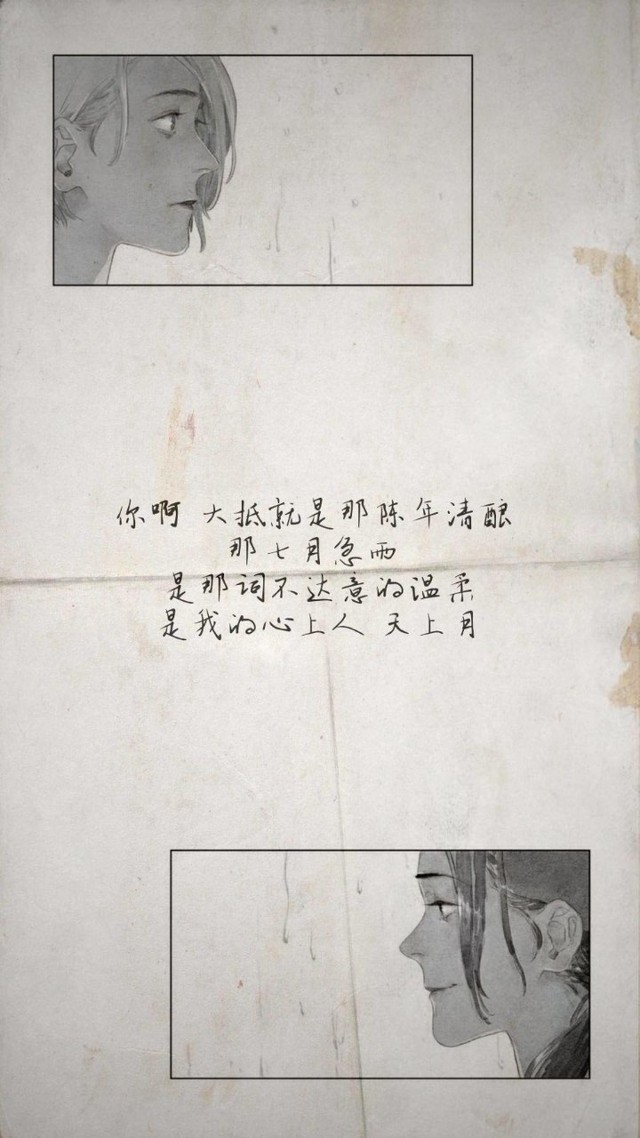 你啊 大抵就是那陈年清酿
那七月急雨
是那词不达意的温柔
是我的心上人 天上月